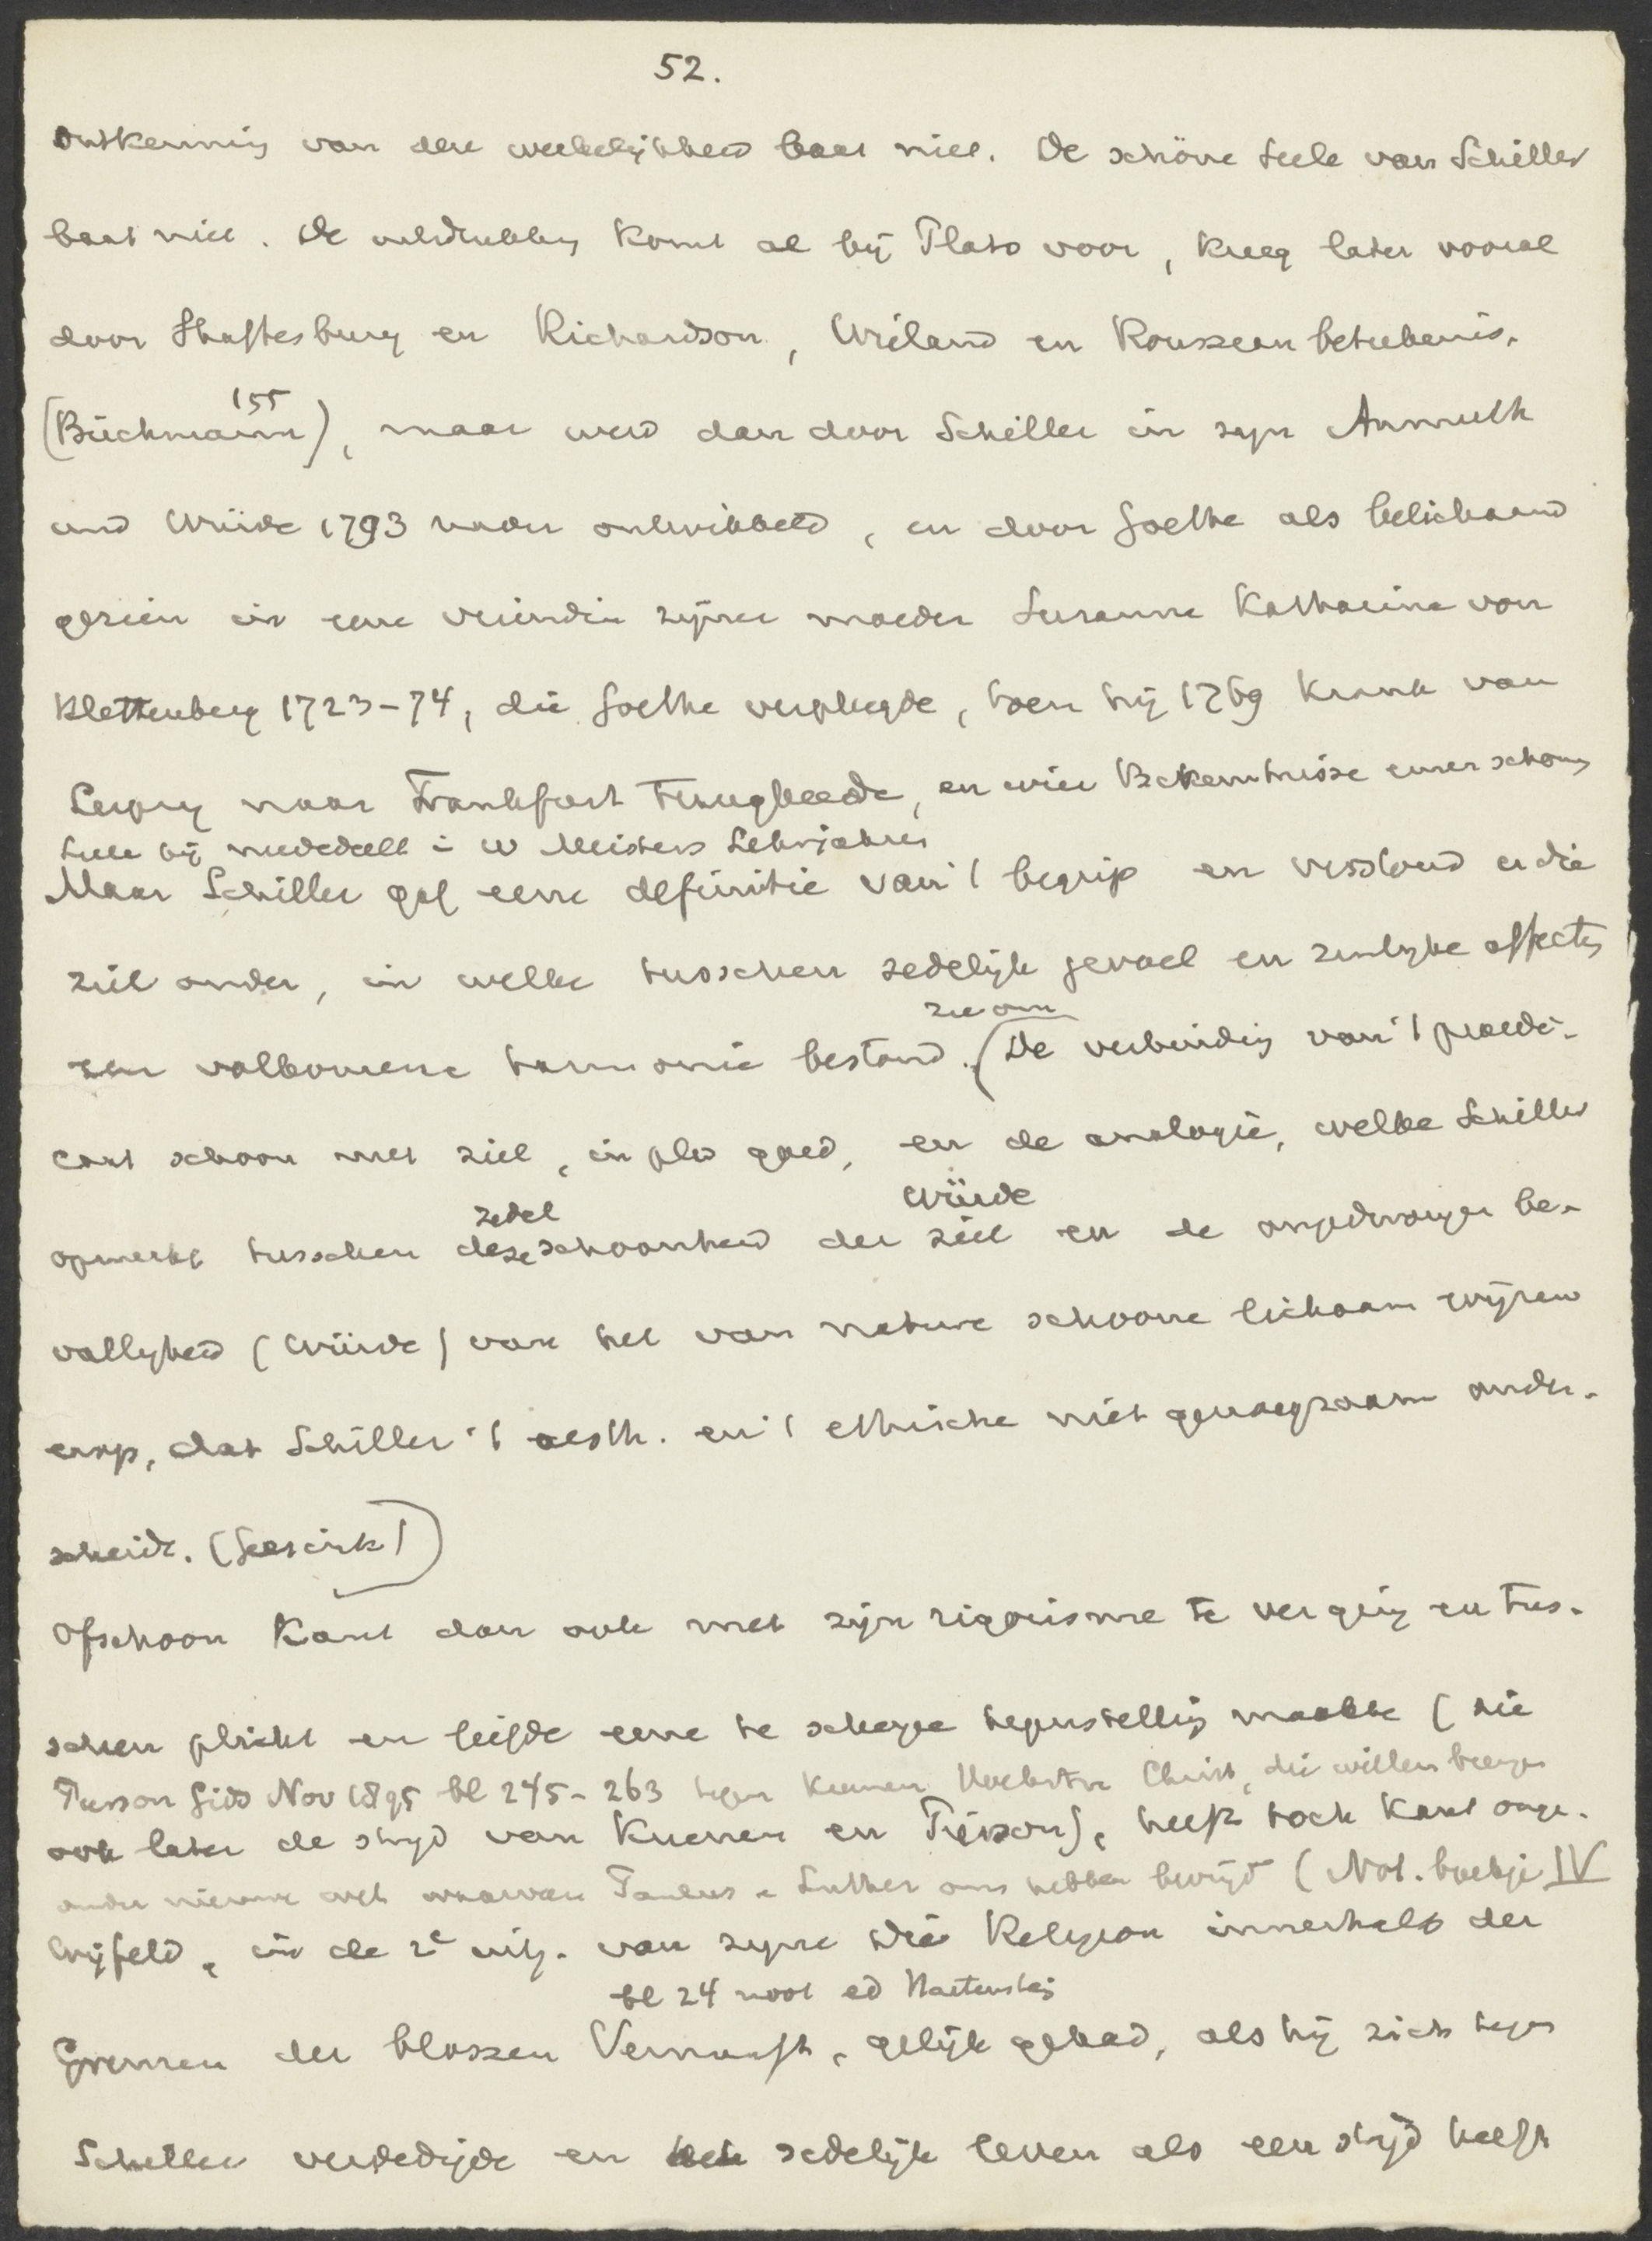 52.
ontkenning van den werkelijkheid baat niet. De schöne Seele van Schiller
baat niet. De uitdrukking komt al bij Plato voor, kreeg later vooral
door Shaftesbury en Richardson, Wieland en Rousseau beteekenis.
155
(Büchmann), maar werd dan door Schiller in zijn Anmuth
und Würde 1793 nader ontwikkeld, en door Goethe als belichaamd
gezien in eene vriendin zijner moeder Susanne Katharina von
Klettenberg 1723-74, die Goethe verpleegde, toen hij 1769 krank van
Leipzig naar Frankfurt terugkeerde, en wier Bekenntnisse einer schönen
Seele hij mededeelt in W Meisters Lehrjahren
Maar Schiller gaf eene definitie van 't begrip en verstond er die
ziel onder, in welke tusschen zedelijk gevoel en zinlijke affecten
zie om
een volkomene harmonie bestond. (De verbinding van 't praedi-
caat schoon met ziel, in pl. v. goed, en de analogie, welke Schiller
zedel Würde
opmerkt tusschen deze schoonheid der ziel en de ongedwongen be-
valligheid (Würde) van het van nature schoone lichaam wijzen
erop, dat Schiller 't aesth. en 't ethische niet genoegzaam onder-
scheidt. (Geesink))
Ofschoon Kant dan ook met zijn rigorisme te ver ging en tus-
schen plicht en liefde eene te scherpe tegenstelling maakte (zie
Pierson Gids Nov 1895 bl 245-263 tegen Kuenen Hoekstra Christ, die willen brengen
ook later de strijd van Kuenen en Pierson), heeft toch Kant onge-
onder nieuwe wet waarvan Paulus en Luther ons hebben bevrijd (Not. boekje IV
twijfeld, in de 2e uitg. van zijne Die Religion innerhalb der
bl 24 noot ed Hartenstein
Grenzen der blossen Vernunft, gelijk gehad, als hij zich tegen
Schiller verdedigde en het zedelijk leven als een strijd heeft